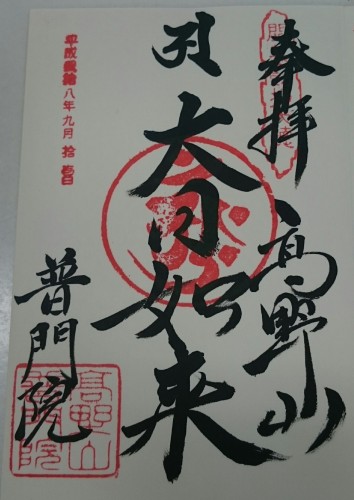 奉拝
高野山
大日如来
普門院
平成貮拾
八年九月拾壹日
高野山
普門院